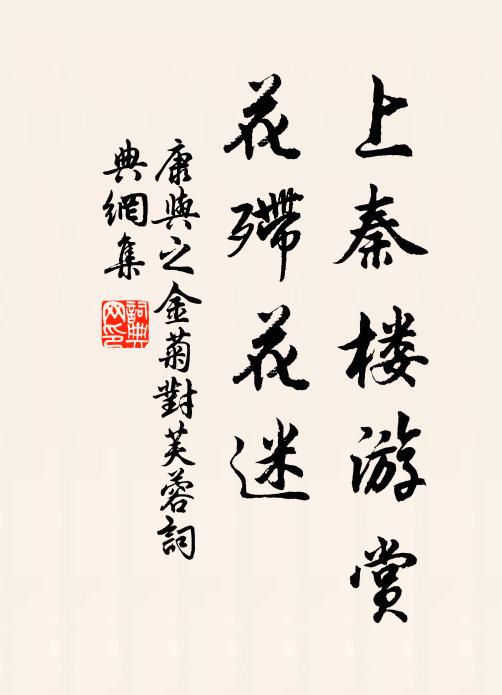 上秦楼游赏
花殢花迷
康與之金菊對芙蓉詞
典網集
詞典
网印